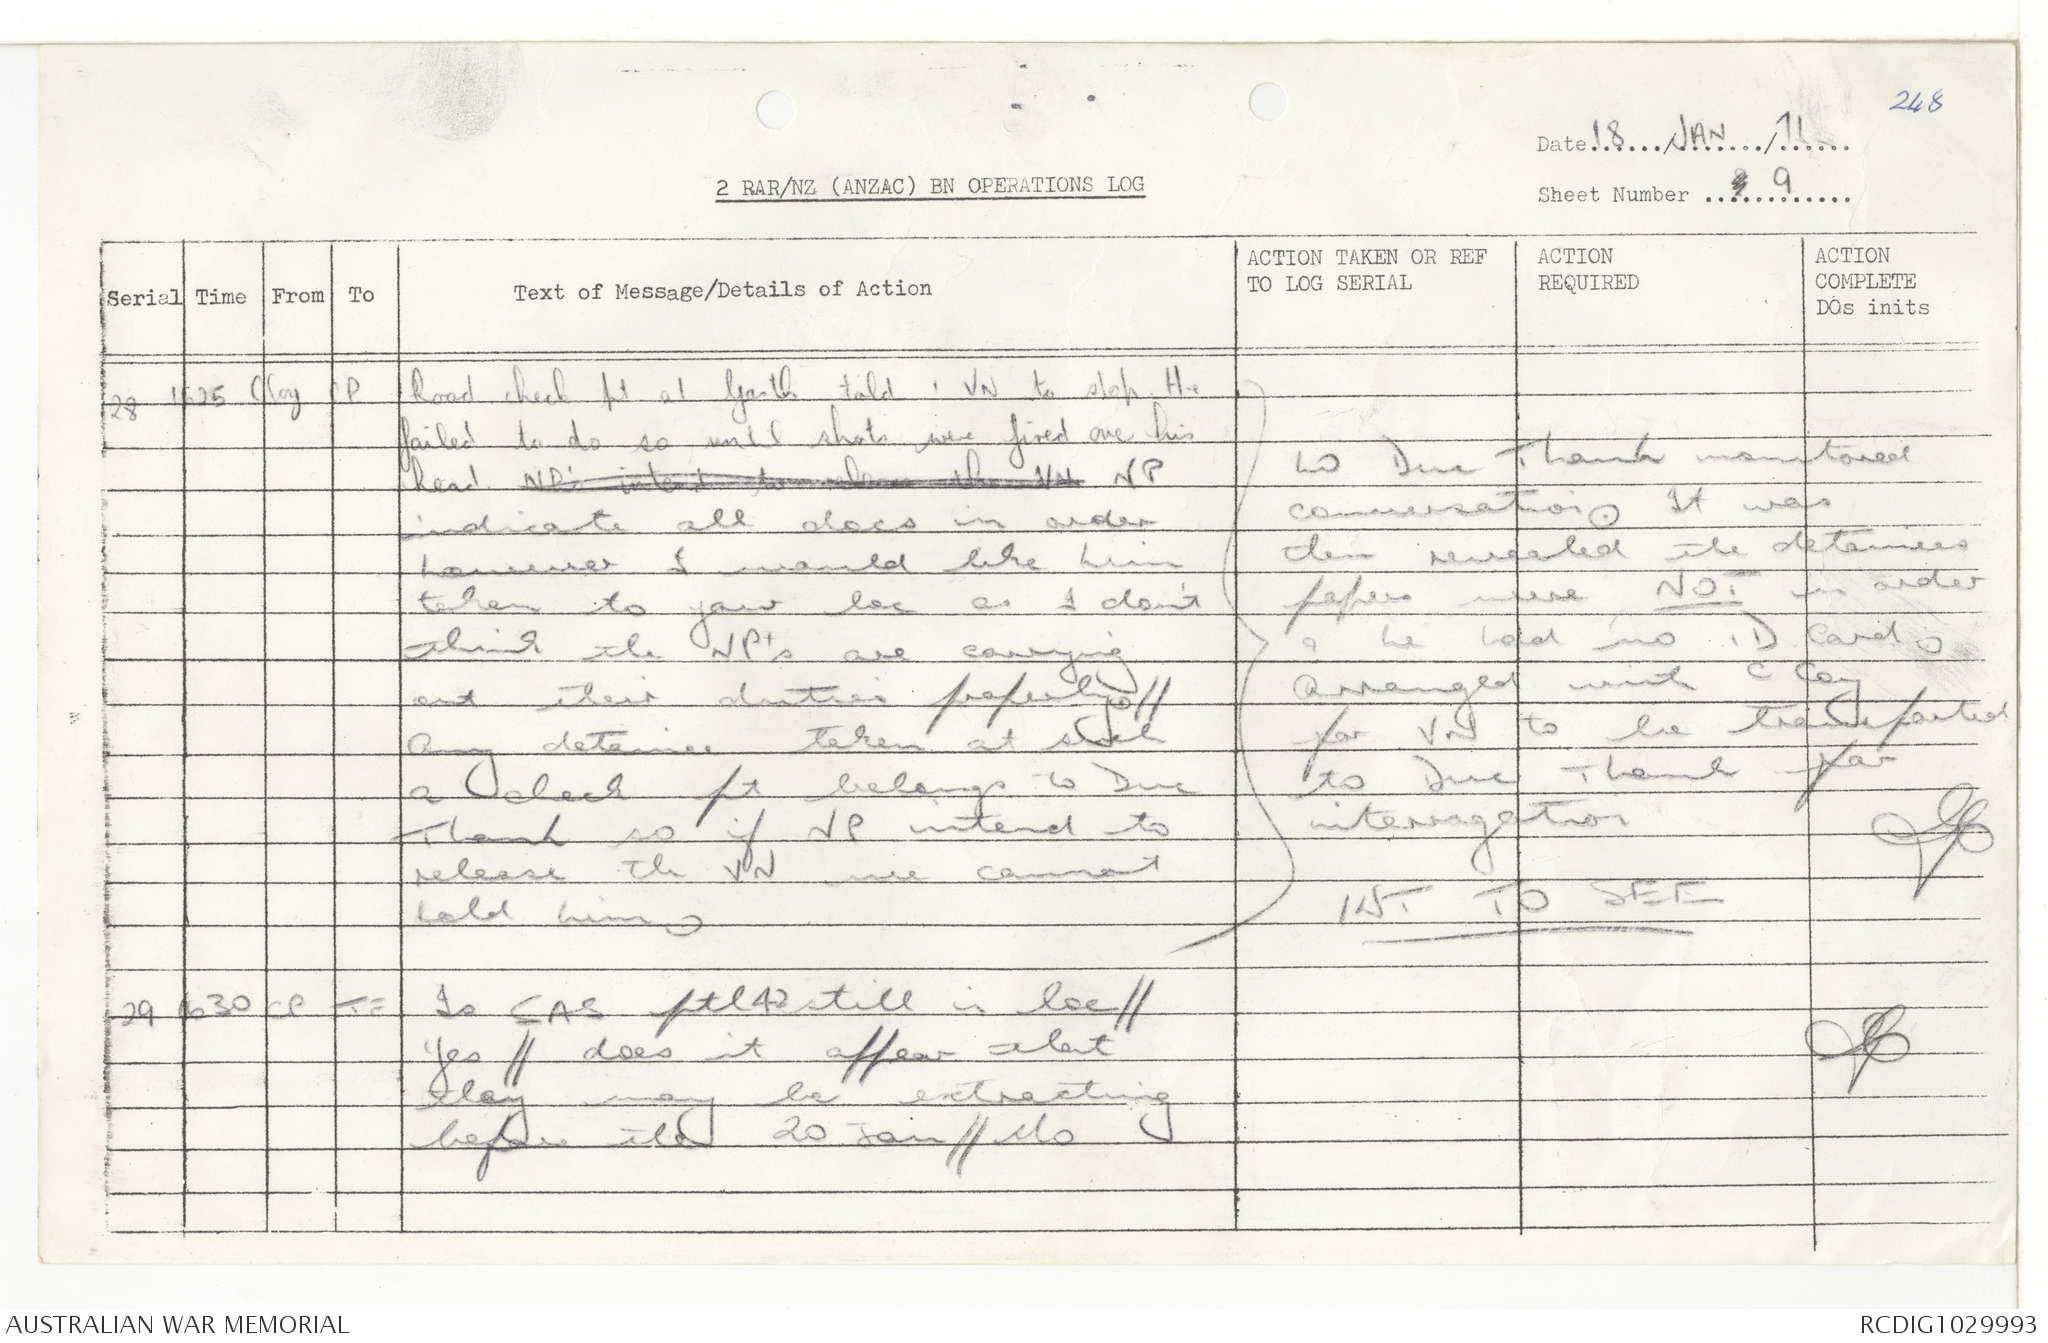 248
Date 18 / JAN / 71
2 RAR/NZ (ANZAC) BN OPERATIONS LOG
Sheet Number 9
Serial Time From To Text of Message/Details of Action ACTION TAKEN OR REF TO LOG SERIAL ACTION REQUIRED ACTION COMPLETE DOs inits
28 1625 CCoy CP Road check pt at told 1 VN to stop. He
failed to do so until shots were fired over his
head. NP's intend to release the VN NP
indicate all docs in order
however I would like him
taken to your loc as I don't
think the NP's are carrying
out their duties properly //
Any detainee taken at such
a check pt belongs to Duc
Thanh so if NP intend to
release the VN we cannot
hold him.
LO Duc Thanh monitored
conversation. It was
then revealed the detainees
papers were NOT in order
& he had no ID Card.
Arranged with C Coy
for VN to be transported
to Duc Thanh for
interrogation
INT TO SEE
29 1630 CP TF Is SAS ptl 42 still in loc //
Yes // does it appear that
they may be extracting
before the 20 Jan // No
AUSTRALIAN WAR MEMORIAL
RCDIG1029993